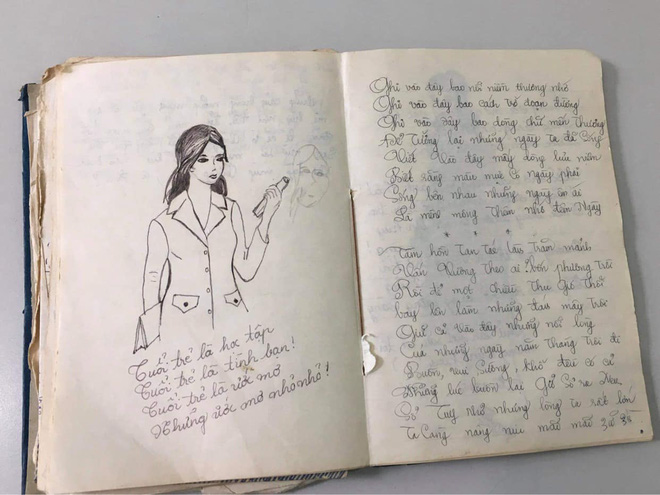 Tuổi trẻ là học tập
Tuổi trẻ là tình bạn!
Tuổi trẻ là ước mơ
Những ước mơ nho nhỏ!
Ghi vào đây bao nỗi niềm thương nhớ
Ghi vào đây bao cách trở đoạn đường
Ghi vào đây bao dòng chữ mến thương
Để tưởng lại những ngày ta đã sống
Viết vào đây mấy dòng lưu niệm
Biết rằng màu mực có ngày phai
Sống bên nhau những ngày êm ái
Là mênh mông thêm nhớ đến ngày
* * *
Tâm hồn tan tác trăm mảnh
Vấn vương theo ai bốn phương trời
Rồi để một chiều thu gió thổi
bay lên làm những đám mây trôi
Quá vào đây những nỗi lòng
Của những ngày năm tháng trôi đi
Buồn, vui sướng, khổ đều có cả
Những lúc buồn lại giở ra
Sổ Tay như những lòng ta
Ta càng nâng niu mãi mãi